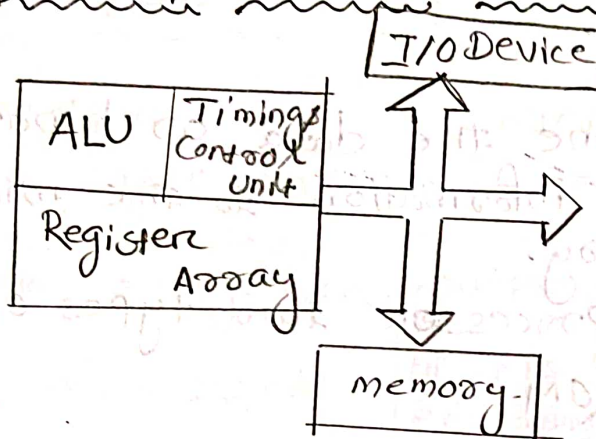 I/O Device
ALU
Timing &
Control
Unit
Register
Array
memory.